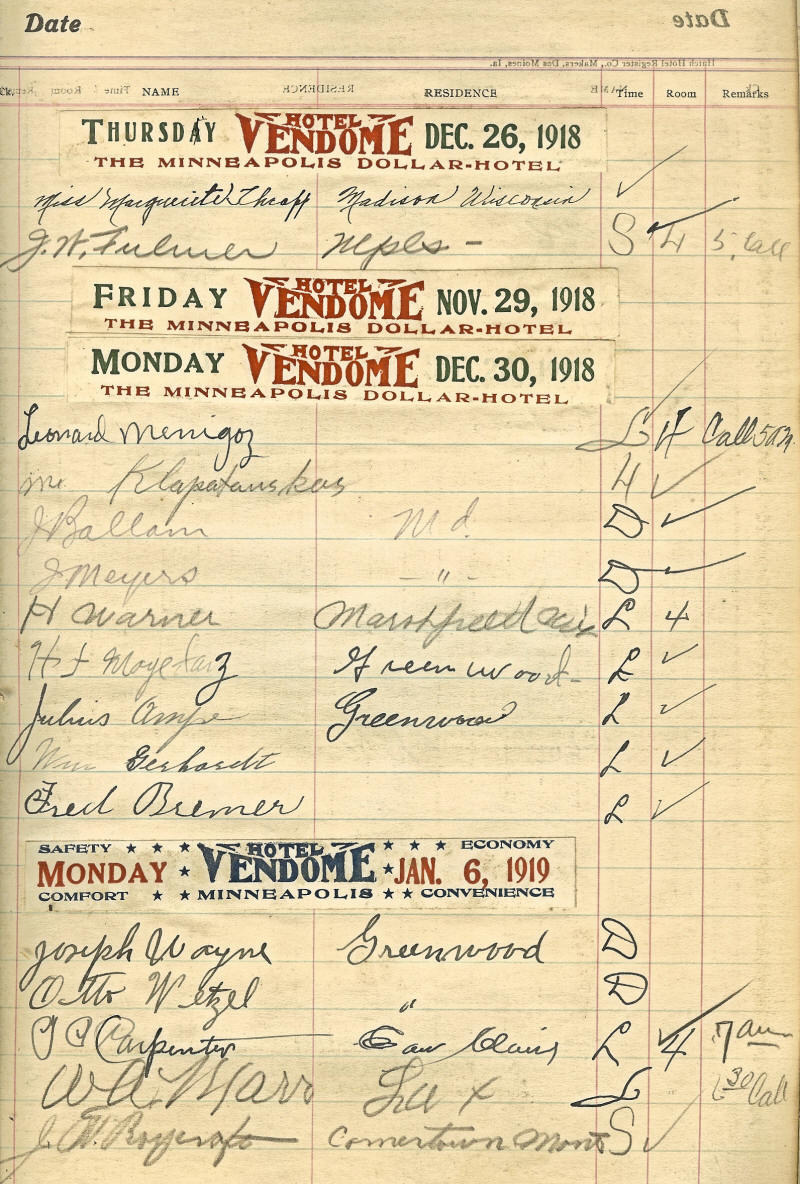 Date
Hatch Hotel Register Co., Makers, Des Moines, Ia.
Ck. NAME RESIDENCE Time Room Remarks
THURSDAY HOTEL VENDOME DEC. 26, 1918
THE MINNEAPOLIS DOLLAR-HOTEL
Miss Marguerite Madison Wisconsin ✓
J. W. Fulmer Mpls - S 4 5. Call
FRIDAY HOTEL VENDOME NOV. 29, 1918
THE MINNEAPOLIS DOLLAR-HOTEL
MONDAY HOTEL VENDOME DEC. 30, 1918
THE MINNEAPOLIS DOLLAR-HOTEL
Leonard Menigoz L H Call 5 am
Mr Klapatauskas H ✓
J Ballam Md. D ✓
J Meyers - " - D ✓
H Warner Marshfield Wis L 4
H F Greenwood - L ✓
Julius Greenwood L ✓
Wm Gerhardt L ✓
Fred Bremer L ✓
SAFETY ★ ★ ★ HOTEL ★ ★ ★ ECONOMY
MONDAY ★ VENDOME ★ JAN. 6, 1919
COMFORT ★ ★ MINNEAPOLIS ★ ★ CONVENIENCE
Joseph Wayne Greenwood D
Otto Wetzel " D
Carpenter Eau Clair L 4 7 am
W A Marr Lax L 6 30 Call
J. W. Roycraft Comertown Mont S ✓